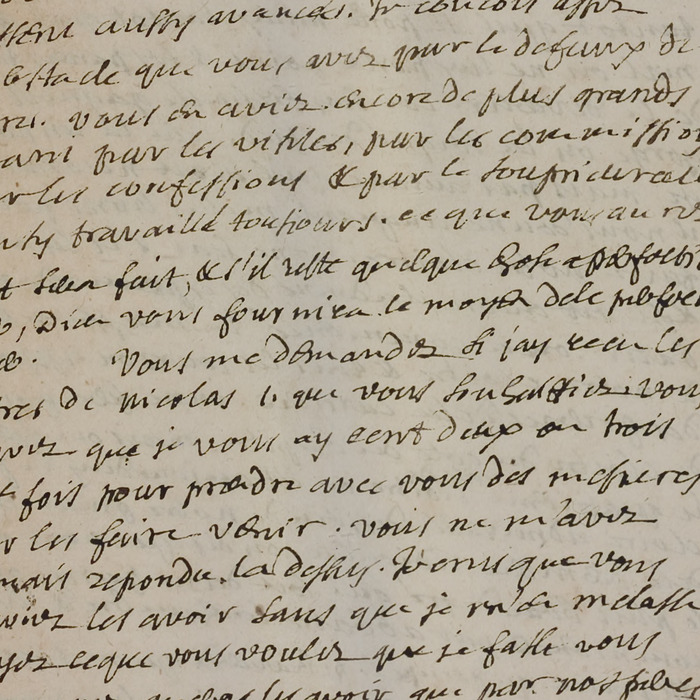 aussy avancés. Je concois assez
obstacle que vous aviez par le defaux de
vous en aviez encore de plus grands
par les visites, par les commissions
les confessions & par le soupriorat
travaillé toutiours. ce que vous au
fait, & s'il reste quelque chose a pæfoeti
Dieu vous fournira le moyen de le
Vous me demandez si jay receu les
de nicolas 1. que vous souhaittiez. vous
que je vous ay ecrit deux ou trois
fois pour prædre avec vous des mesures
les faire vænir. vous ne m'avez
mais repondu la dessus. Je crus que vous
les avoir sans que je m'æ melasse
ce que vous voulez que je fasse vous
les avoir que par nos pères